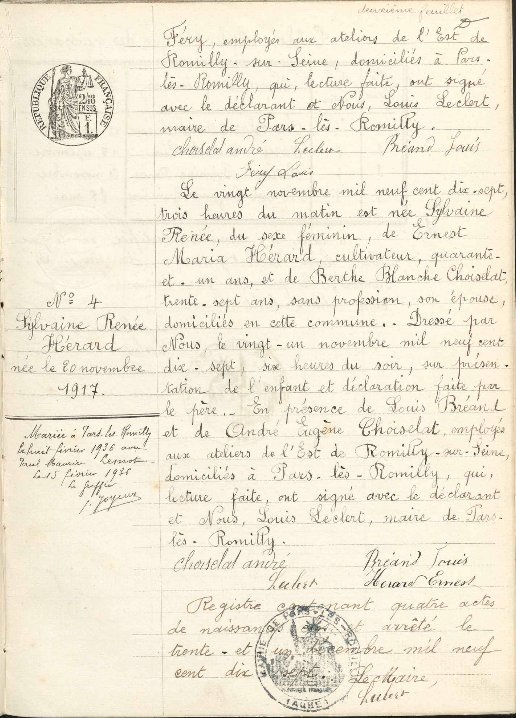 deuxième feuillet
Féry, employés aux ateliers de l'Est de
Romilly-sur-Seine, domiciliés à Pars-
lès-Romilly, qui, lecture faite, ont signé
avec le déclarant et Nous, Louis Leclert,
maire de Pars-lès-Romilly.
Choiselat andré Leclert Bréand Louis
Féry Louis
RÉPUBLIQUE FRANÇAISE
Le vingt novembre mil neuf cent dix-sept,
trois heures du matin est née Sylvaine
Renée, du sexe féminin, de Ernest
Maria Hérard, cultivateur, quarante-
et-un ans, et de Berthe Blanche Choiselat,
trente-sept ans, sans profession, son épouse,
domiciliés en cette commune.. Dressé par
Nous, le vingt-un novembre mil neuf cent
dix-sept six heures du soir, sur présen-
tation de l'enfant et déclaration faite par
le père.. En présence de Louis Bréand
et de André Eugène Choiselat, employés
aux ateliers de l'Est de Romilly-sur-Seine,
domiciliés à Pars-lès-Romilly, qui,
lecture faite, ont signé avec le déclarant
et Nous, Louis Leclert, maire de Pars-
lès-Romilly.
Choiselat andré Bréand Louis
Leclert Hérard Ernest
N° 4
Sylvaine Renée
Hérard
née le 20 novembre
1917.
Mariée à Pars-les-Romilly
le huit février 1936 avec
Paul Maurice
le 15 février 1936
Le Greffier
Registre contenant quatre actes
de naissance et arrêté le
trente-et-un décembre mil neuf
cent dix sept. Le Maire,
Leclert
MAIRIE DE PARS-LÈS-ROMILLY
(AUBE)